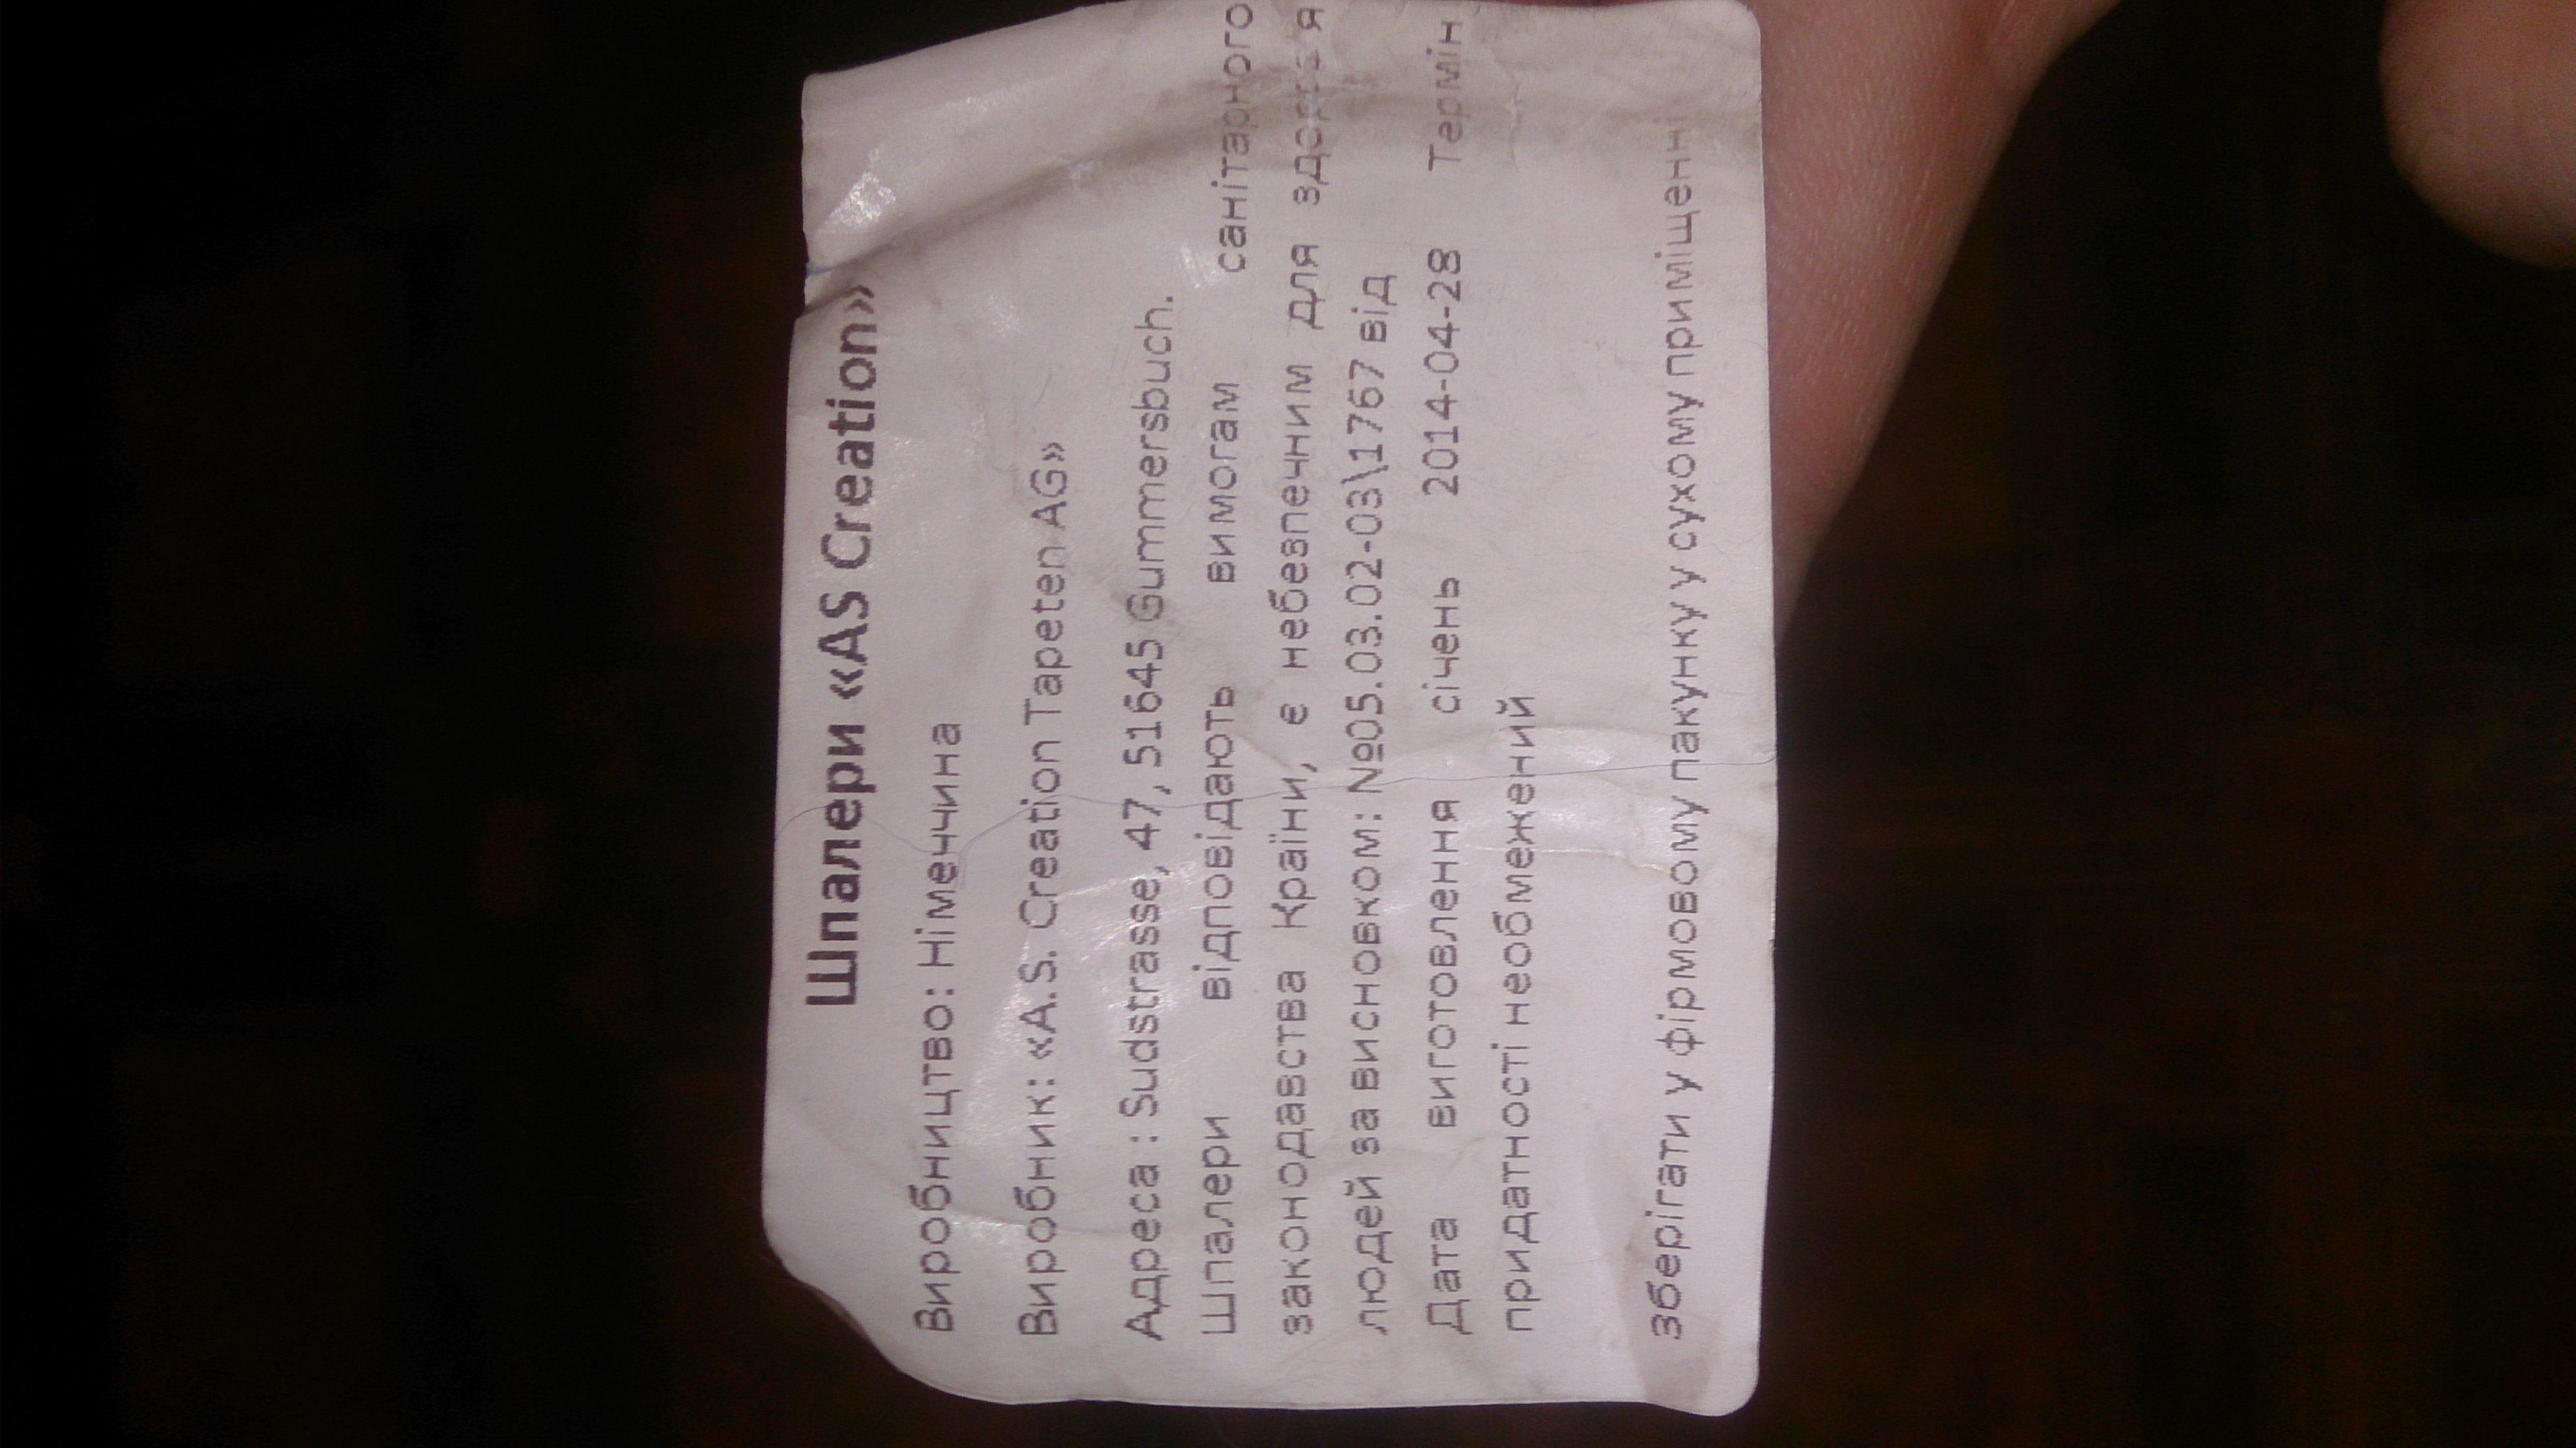 Шпалери «AS Creation»
Виробництво: Німеччина
Виробник: «A.S. Creation Tapeten AG»
Адреса : Sudstrasse, 47, 51645 Gummersbuch.
Шпалери відповідають вимогам санітарного
законодавства Країни, є небезпечним для здоров'я
людей за висновком: №05.03.02-03\1767 від
Дата виготовлення січень 2014-04-28 Термін
придатності необмежений
Зберігати у фірмовому пакунку у сухому приміщенні